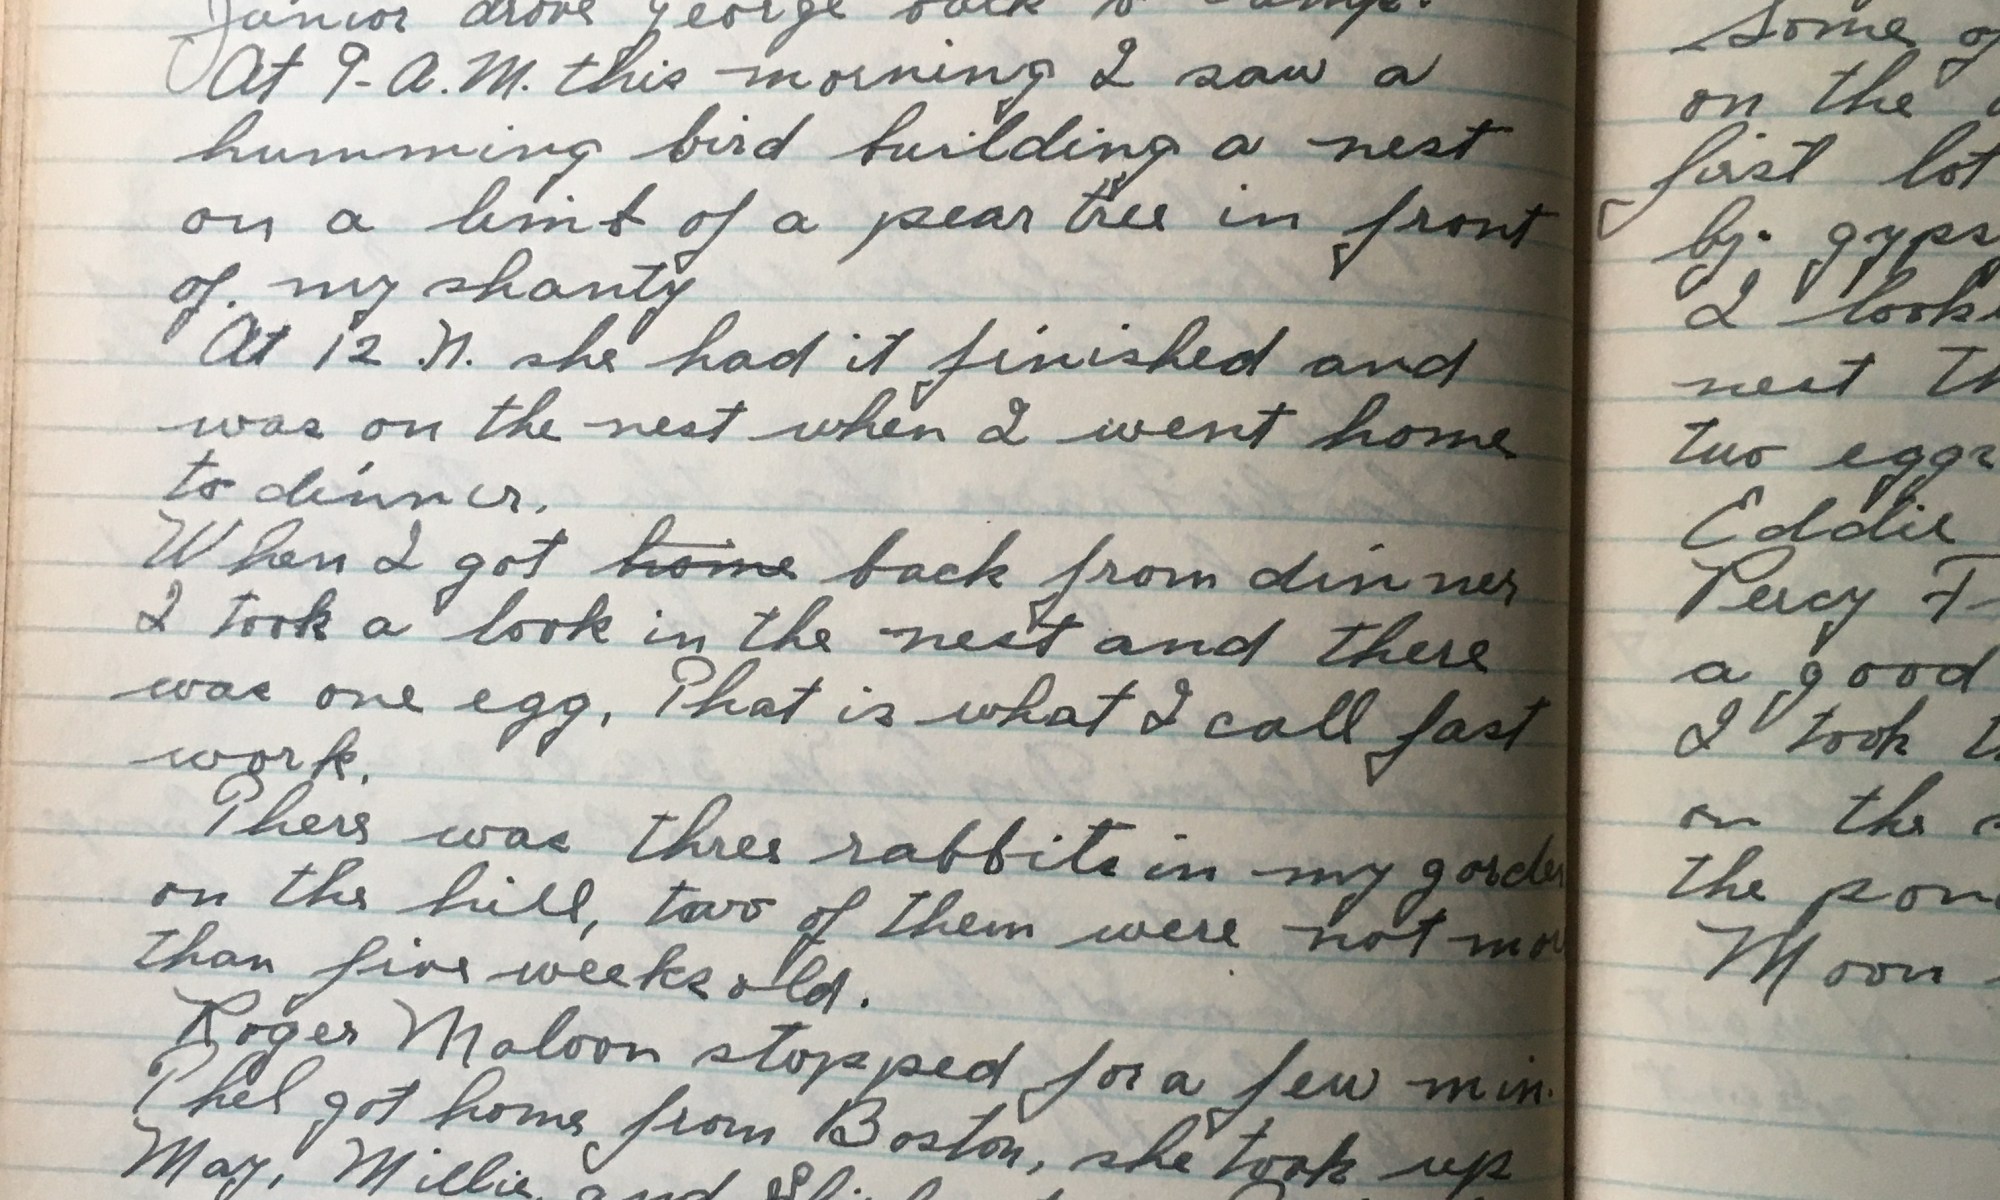 Junior drove George back to camp.
At 9-A.M. this morning I saw a
humming bird building a nest
on a limb of a pear tree in front
of. my shanty
At 12 N. she had it finished and
was on the nest when I went home
to dinner.
When I got home back from dinner
I took a look in the nest and there
was one egg, That is what I call fast
work.
There was three rabbits in my garden
on the hill, two of them were not mor
than five weeks old.
Roger Maloon stopped for a few min.
Thel got home from Boston, she took up
May, Millie, and
Some of
on the
first lot
by. gyps
I look
nest Th
two eggs
Eddie
Percy F
a good
I took t
on the
the pon
Moon